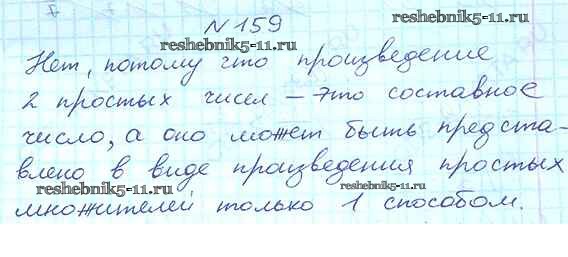 №159
reshebnik5-11.ru
reshebnik5-11.ru
Нет, потому что произведение
2 простых чисел – это составное
число, а оно может быть предста-
влено в виде произведения простых
reshebnik5-11.ru
reshebnik5-11.ru
множителей только 1 способом.